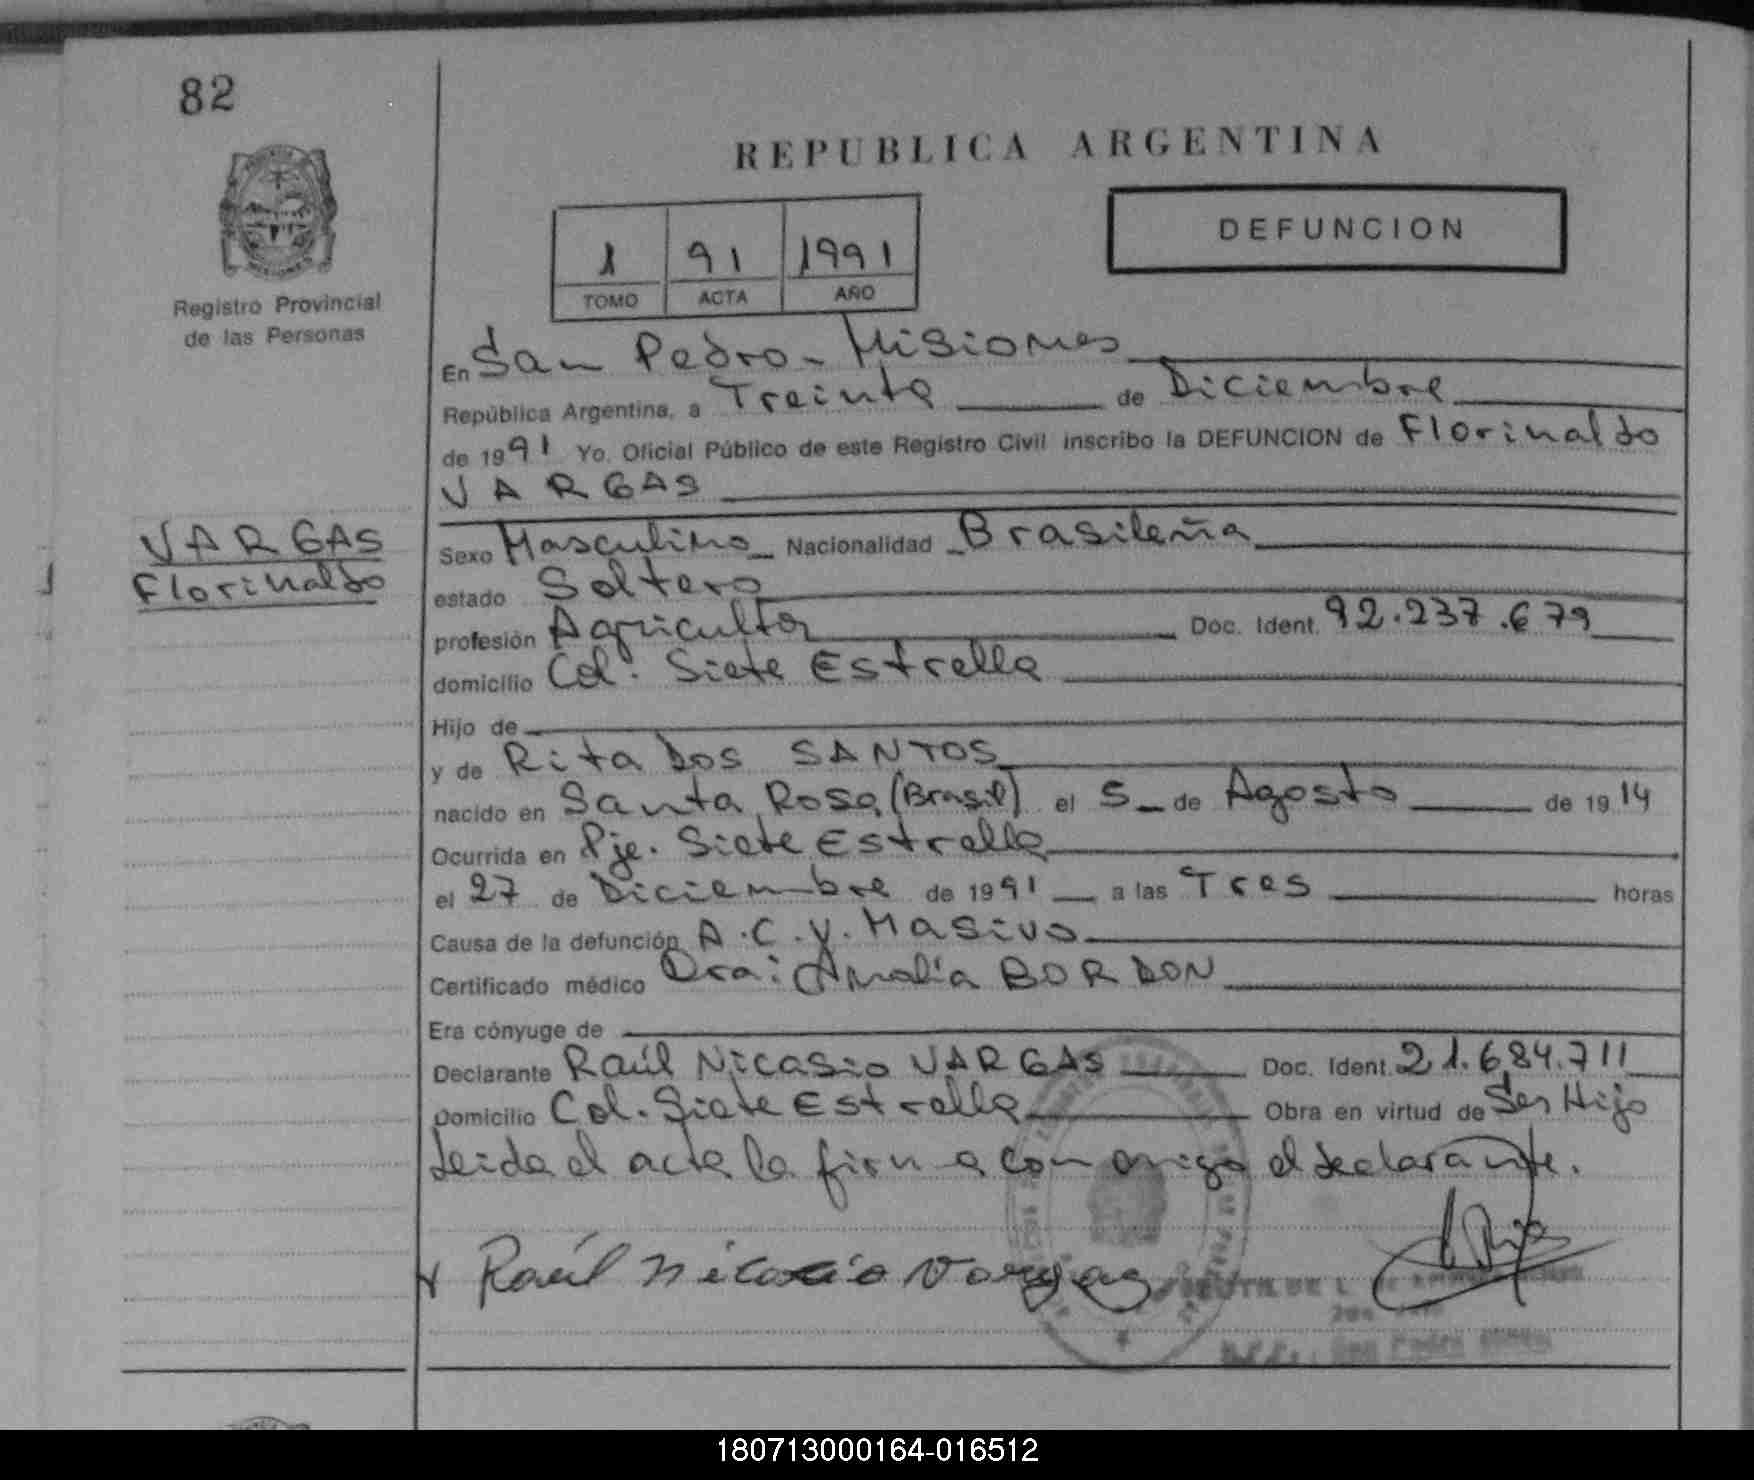 82
REPUBLICA ARGENTINA
DEFUNCION
1 91 1991
TOMO ACTA AÑO
Registro Provincial
de las Personas
En San Pedro - Misiones
República Argentina, a Treinta de Diciembre
de 1991 Yo, Oficial Público de este Registro Civil inscribo la DEFUNCION de Florinaldo
VARGAS
VARGAS
Florinaldo
Sexo Masculino Nacionalidad Brasileña
estado Soltero
profesión Agricultor Doc. Ident. 92.237.679
domicilio Col. Siete Estrella
Hijo de
y de Rita Dos SANTOS
nacido en Santa Rosa (Brasil) el 5 de Agosto de 1914
Ocurrida en Pje. Siete Estrella
el 27 de Diciembre de 1991 a las Tres horas
Causa de la defunción A.C.V. Masivo
Certificado médico Dra: Amalia BORDON
Era cónyuge de
Declarante Raúl Nicasio VARGAS Doc. Ident. 21.684.711
Domicilio Col. Siete Estrella Obra en virtud de Ser Hijo
Leida el acta la firma conmigo el declarante.
Raúl Nicasio Vargas
180713000164-016512